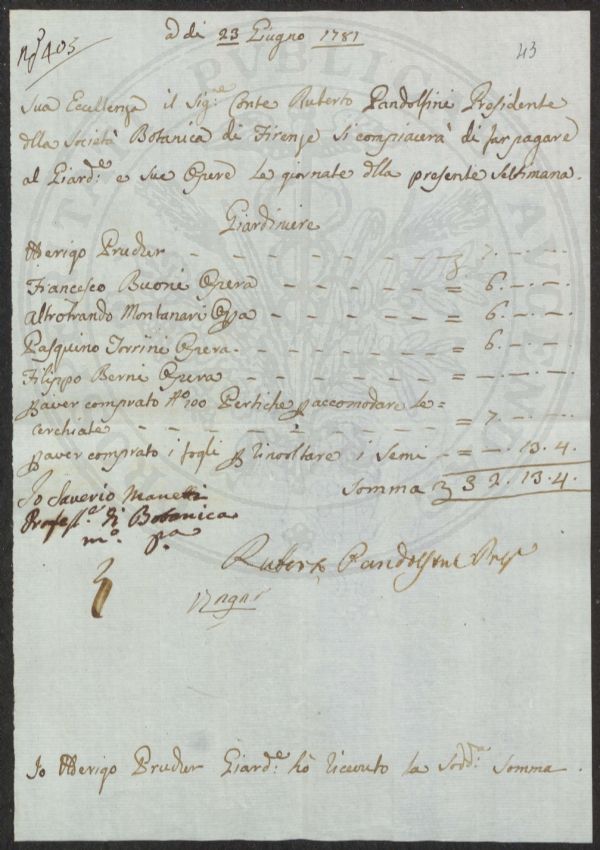 No 403
a di 23 Giugno 1781
43
Sua Eccellenza il Sig.re Conte Ruberto Pandolfini Presidente
della Società Botanica di Firenze si compiacerà di far pagare
al Giard.e e sue Opere le giornate della presente Settimana.
Giardiniere
Alderigo Prucker — — — — — — — — 7. —. —
Francesco Buoni Opera — — — — — = 6. —. —
Altrotrando Montanari Opa — — — — = 6. —. —
Pasquino Torrini Opera. — — — — — = 6. —. —
Filippo Berni Opera — — — — — — = —. —. —
p aver comprato No 100 Pertiche p accomodare le =
cerchiate — — — — — — — — — = 7. —. —
p aver comprato i fogli p rinvoltare i Semi — = —. 13. 4.
Somma 32. 13. 4.
Io Saverio Manetti
Profess.e di Botanica
m.o p.a
Ruberto Pandolfini Pres
Io Alderigo Prucker Giard.e hò ricevuto la Sodd.a Somma.